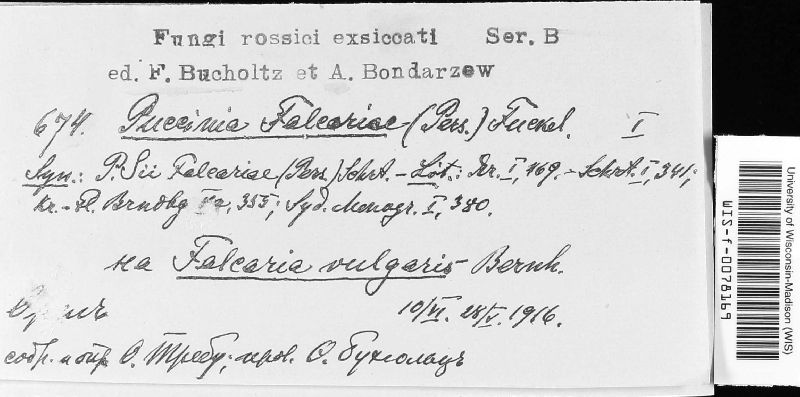 Fungi rossici exsiccati Ser. B
ed. F. Bucholtz et A. Bondarzew
674. Puccinia Falcariae (Pers.) Fuckel. I
Syn.: P. Sii Falcariae (Pers.) Schrt. – Lit.: Kr. I, 169. – Schrt. I, 341;
Kr. – Fl. Brndbg Va, 355; Syd. Monogr. I, 380.
на Falcaria vulgaris Bernh.
10/VI. 28/V. 1916.
собр. и опр. О. Требу; пров. О. Бухгольцъ
University of Wisconsin-Madison (WIS)
WIS-f-0078169